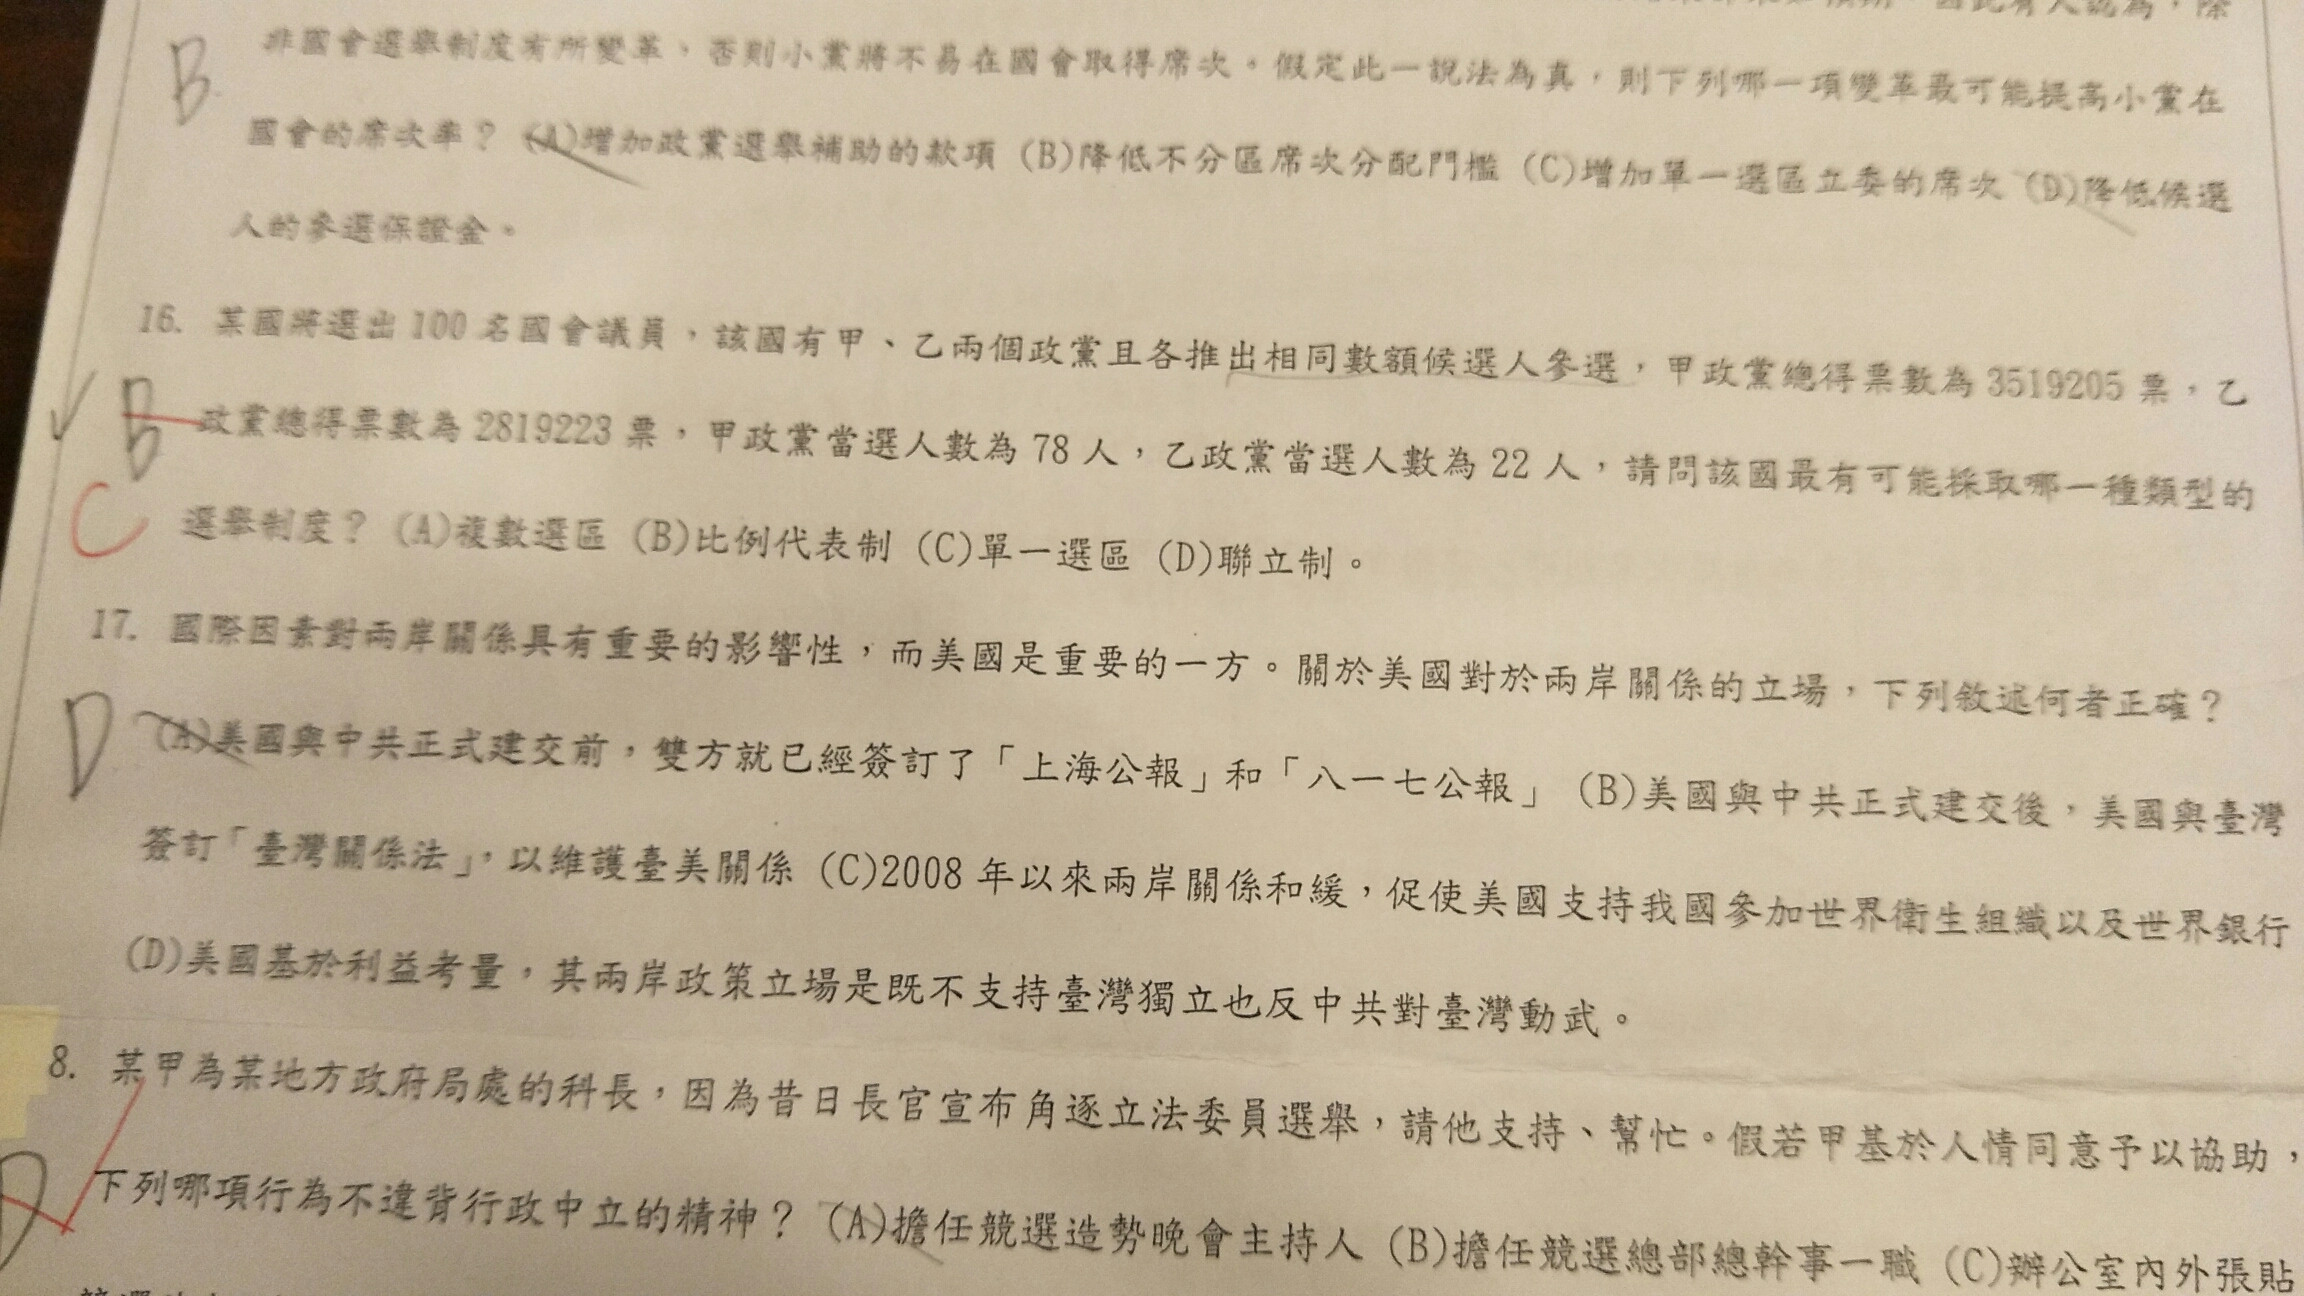 因此有人認為，除
B 非國會選舉制度有所變革，否則小黨將不易在國會取得席次。假定此一說法為真，則下列哪一項變革最可能提高小黨在
國會的席次率？ (A)增加政黨選舉補助的款項 (B)降低不分區席次分配門檻 (C)增加單一選區立委的席次 (D)降低候選
人的參選保證金。
16. 某國將選出 100 名國會議員，該國有甲、乙兩個政黨且各推出相同數額候選人參選，甲政黨總得票數為 3519205 票，乙
B 政黨總得票數為 2819223 票，甲政黨當選人數為 78 人，乙政黨當選人數為 22 人，請問該國最有可能採取哪一種類型的
C 選舉制度？ (A)複數選區 (B)比例代表制 (C)單一選區 (D)聯立制。
17. 國際因素對兩岸關係具有重要的影響性，而美國是重要的一方。關於美國對於兩岸關係的立場，下列敘述何者正確？
D (A)美國與中共正式建交前，雙方就已經簽訂了「上海公報」和「八一七公報」 (B)美國與中共正式建交後，美國與臺灣
簽訂「臺灣關係法」，以維護臺美關係 (C)2008 年以來兩岸關係和緩，促使美國支持我國參加世界衛生組織以及世界銀行
(D)美國基於利益考量，其兩岸政策立場是既不支持臺灣獨立也反中共對臺灣動武。
8. 某甲為某地方政府局處的科長，因為昔日長官宣布角逐立法委員選舉，請他支持、幫忙。假若甲基於人情同意予以協助，
D 下列哪項行為不違背行政中立的精神？ (A)擔任競選造勢晚會主持人 (B)擔任競選總部總幹事一職 (C)辦公室內外張貼